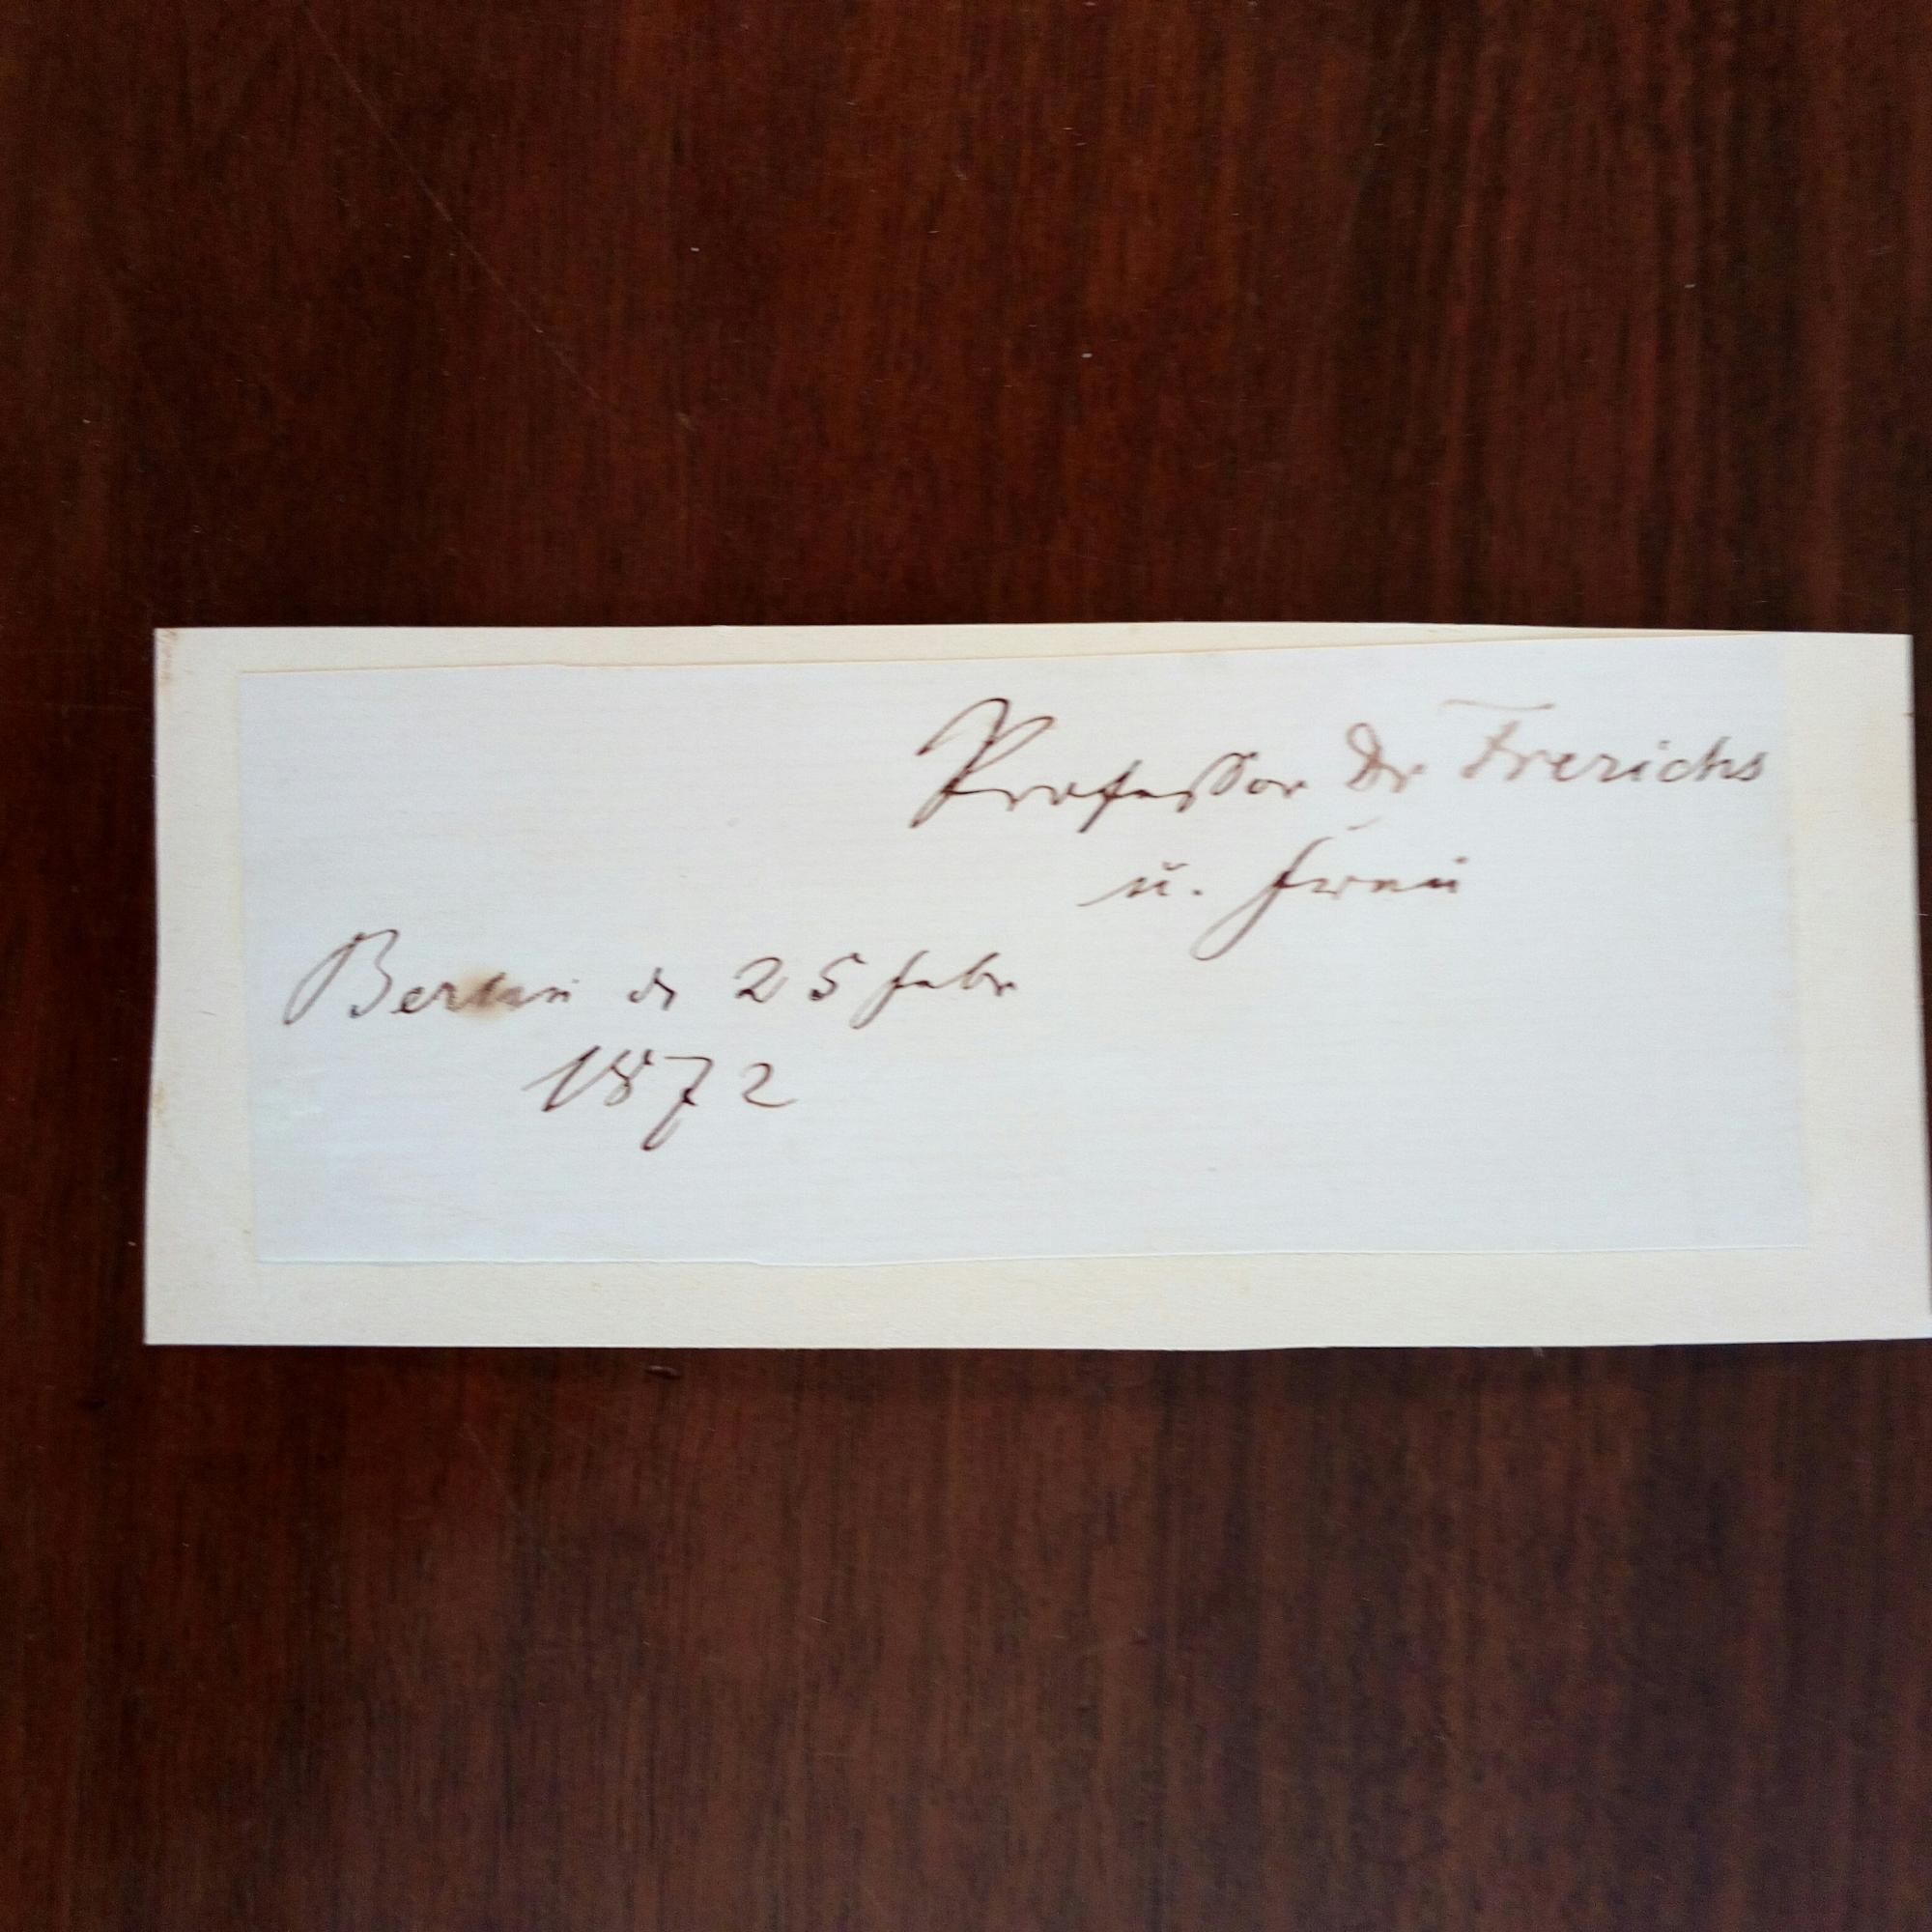 Professor Dr Frerichs
u. Frau
Berlin d. 25 Febr
1872